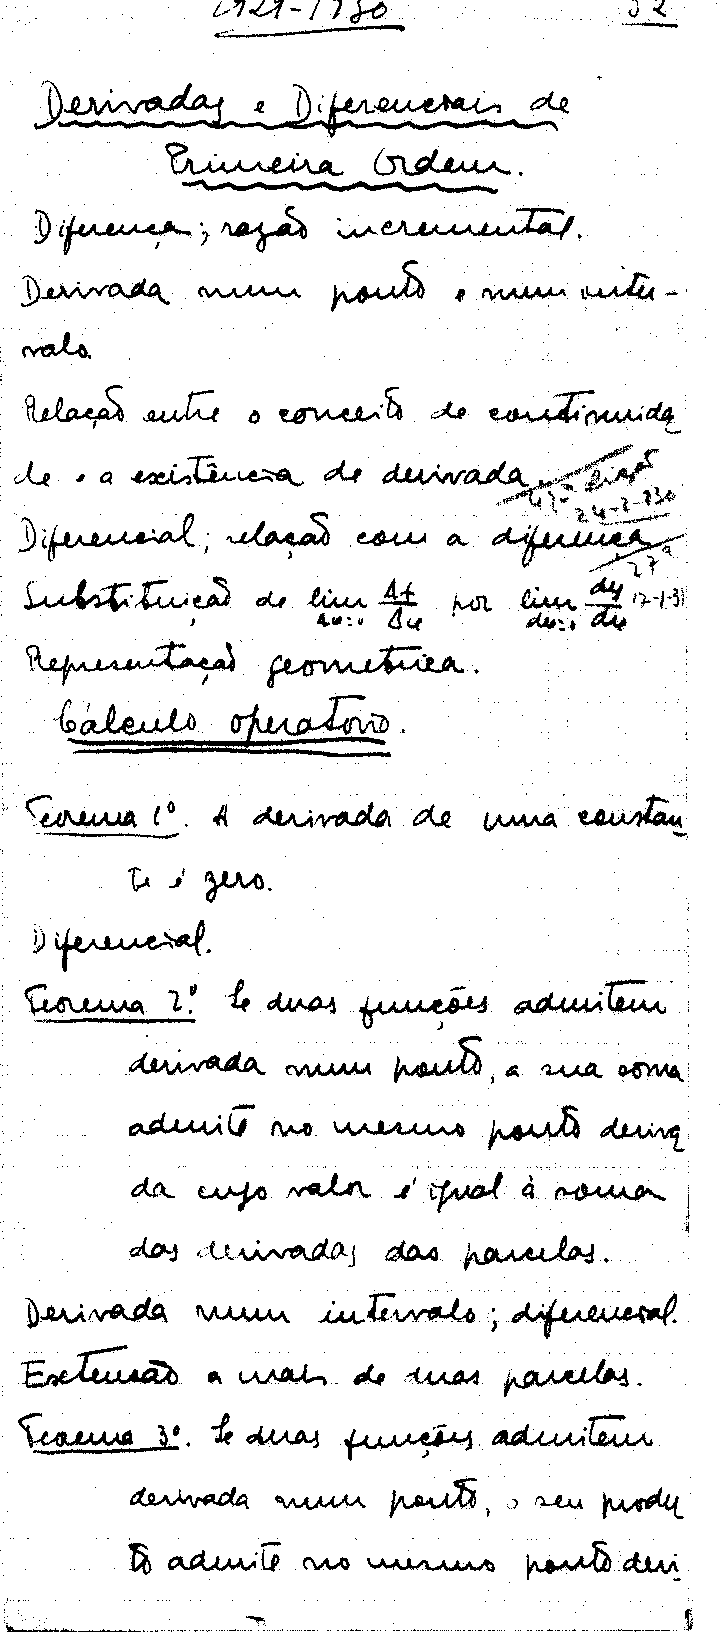 1929-1930 52
Derivadas e Diferenciais de
Primeira Ordem.
Diferença; razão incremental.
Derivada num ponto e num inter-
valo.
Relação entre o conceito de continuida
de e a existência de derivada.
42ª lição
24-2-930
Diferencial; relação com a diferença
27ª
Substituição de lim Δf/Δu por lim dy/du 12-1-31
Δu=0 du=0
Representação geometrica.
Cálculo operatorio.
Teorema 1º. A derivada de uma constan-
te é zero.
Diferencial.
Teorema 2º. Se duas funções admitem
derivada num ponto, a sua soma
admite no mesmo ponto deriva
da cujo valor é igual à soma
das derivadas das parcelas.
Derivada num intervalo; diferencial.
Extensão a mais de duas parcelas.
Teorema 3º. Se duas funções admitem
derivada num ponto, o seu produ
to admite no mesmo ponto deri-